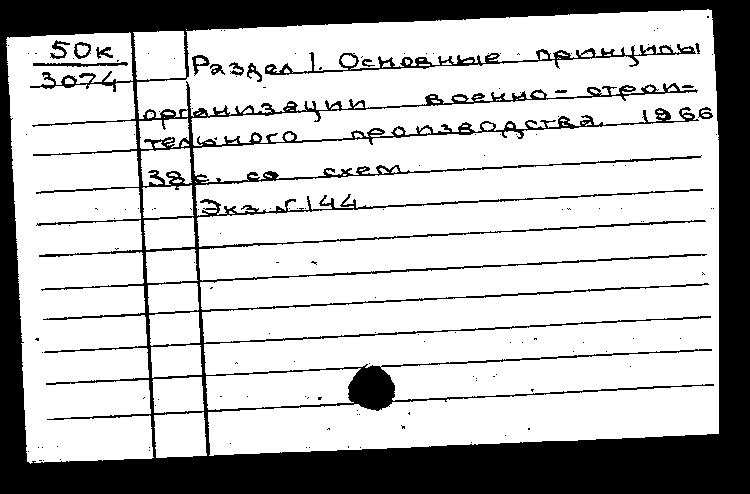 50к
3074
Раздел 1. Основные принципы
организации военно-строи-
тельного производства. 1966
38 с. со схем.
Экз. № 144.